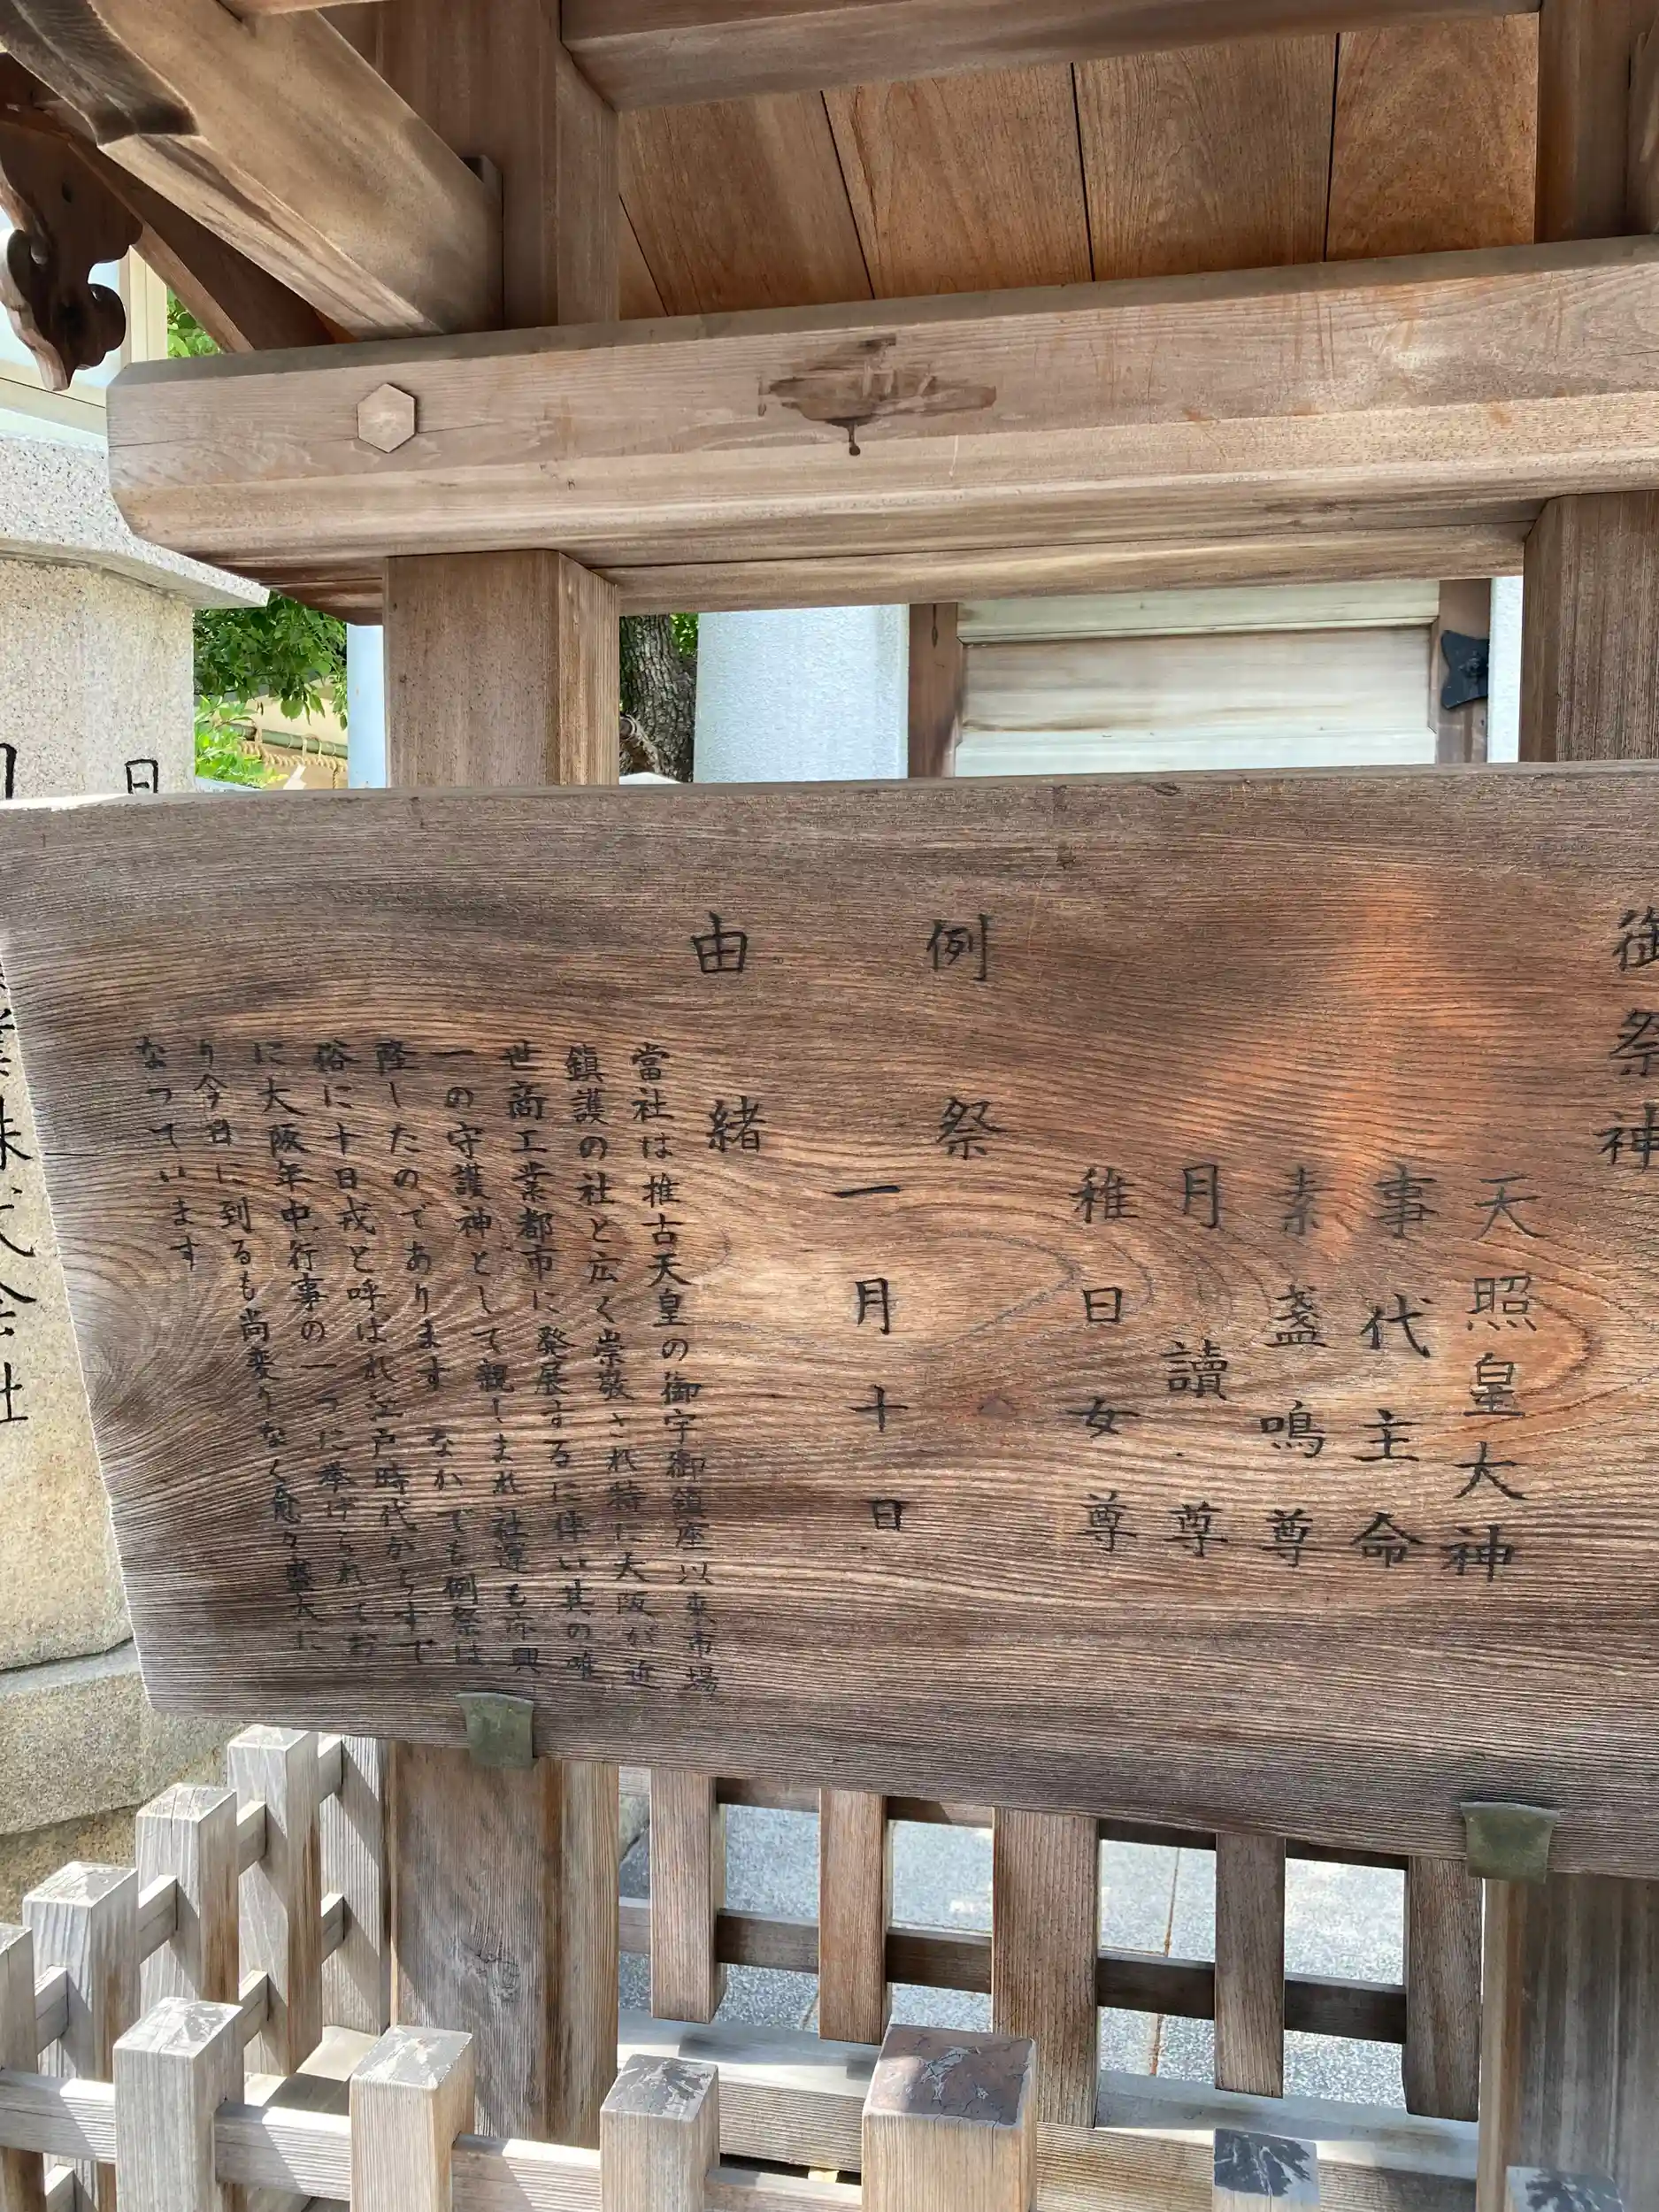 御祭神
天照皇大神
事代主命
素盞鳴尊
月讀尊
稚日女尊
例祭
一月十日
由緒
當社は推古天皇の御宇御鎮座以来市場
鎮護の社と広く崇敬され特に大阪が近
世商工業都市に発展するに伴い其の唯
一の守護神として親しまれ社運も亦興
隆したのであります なかでも例祭は
俗に十日戎と呼ばれ江戸時代からすで
に大阪年中行事の一つに挙げられてお
り今日に到るも尚変りなく愈々盛大に
なっています